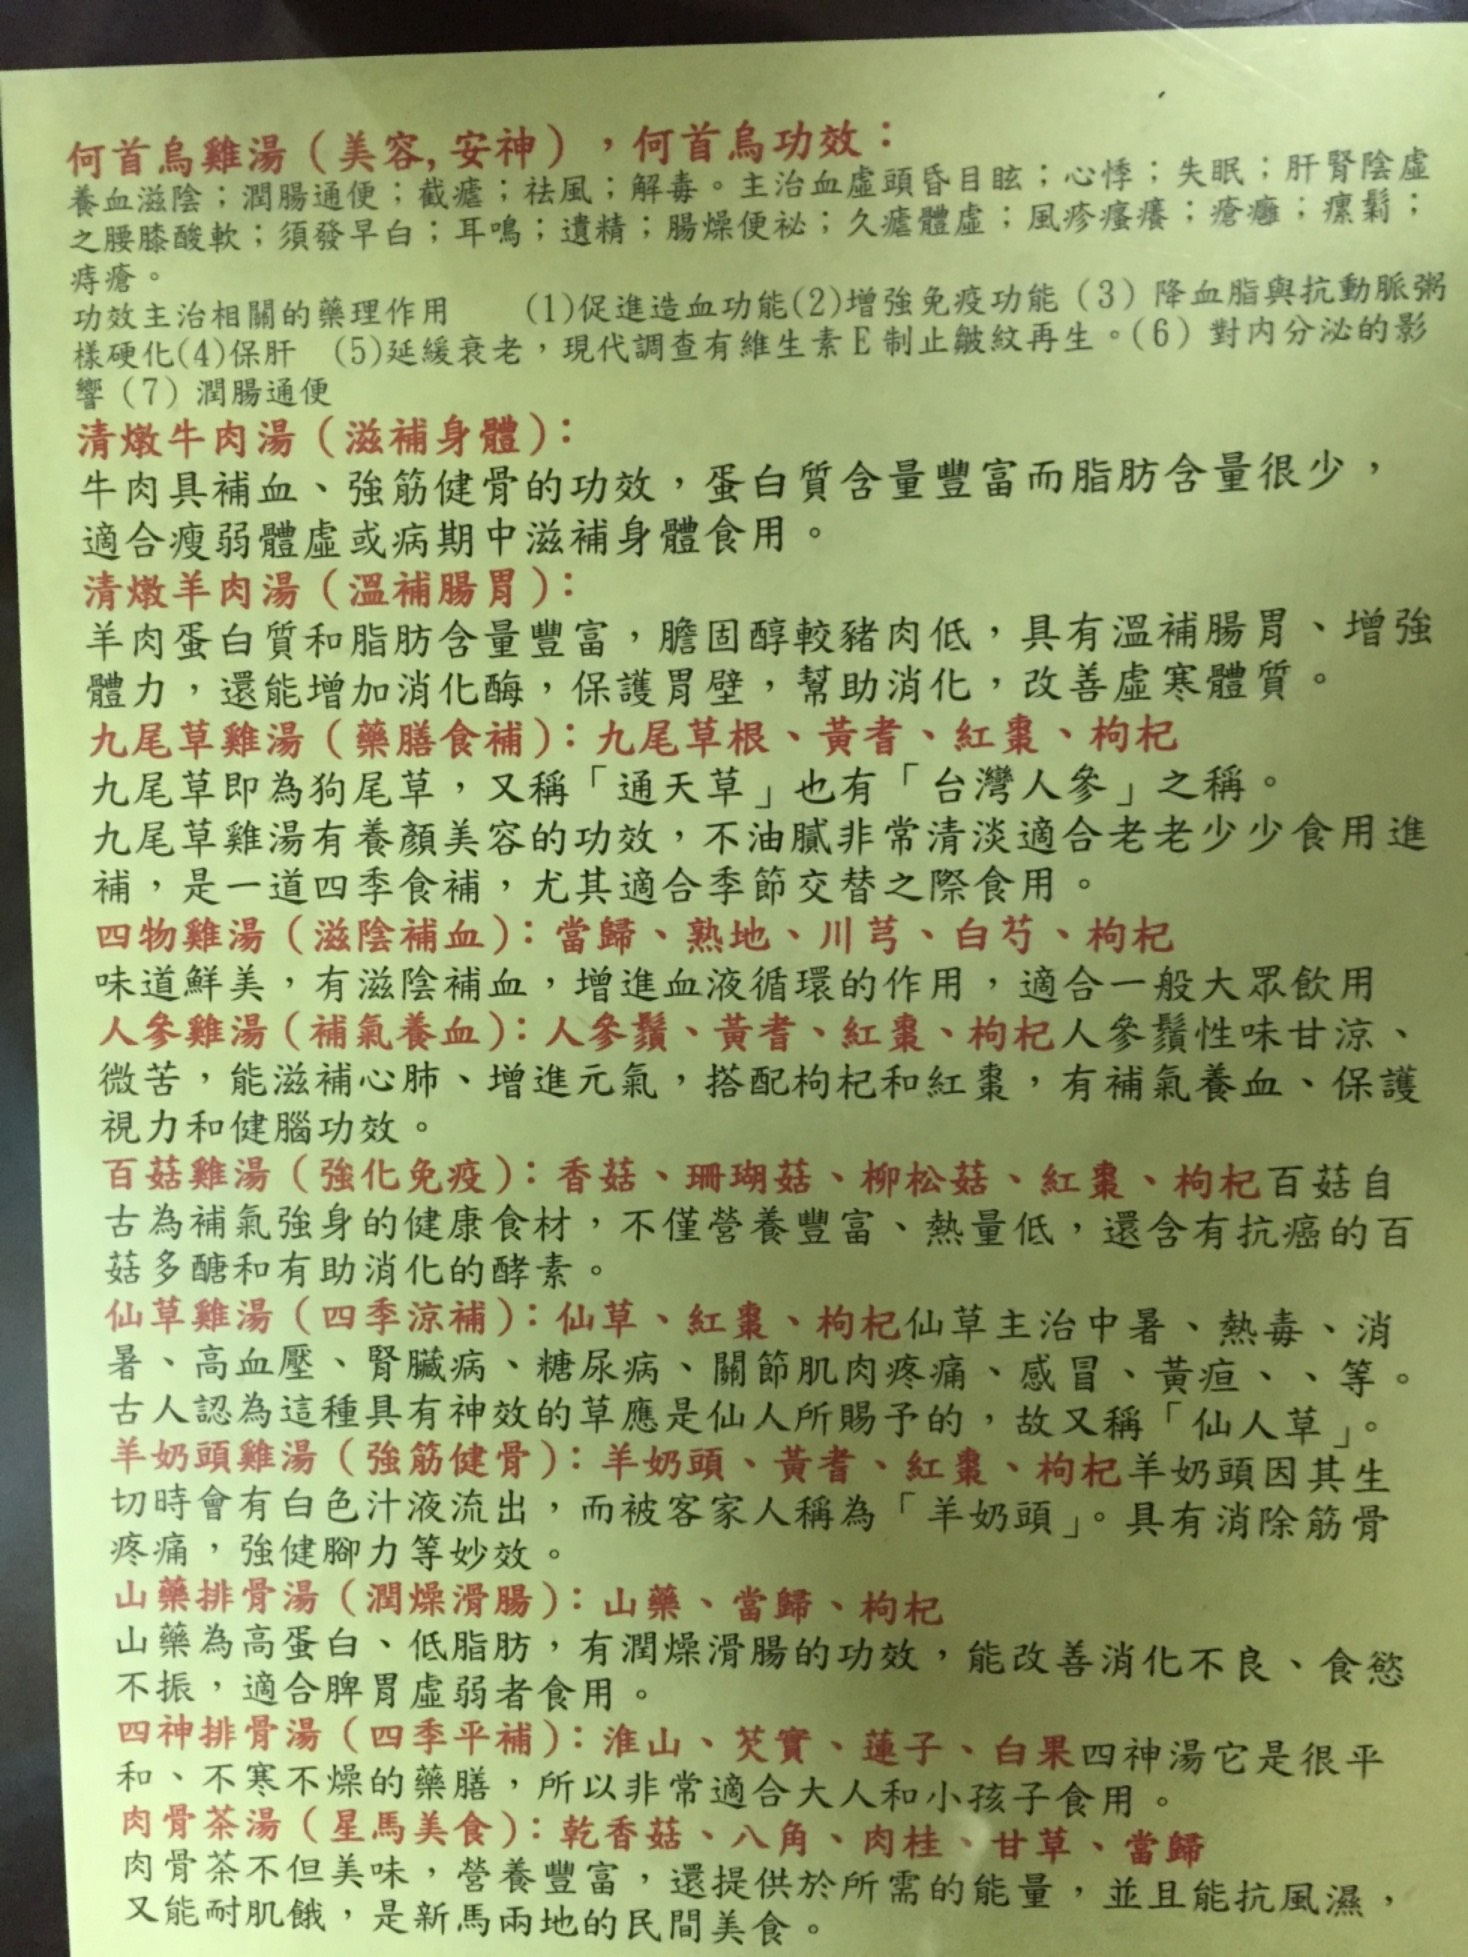 何首烏雞湯（美容,安神），何首烏功效：
養血滋陰；潤腸通便；截瘧；祛風；解毒。主治血虛頭昏目眩；心悸；失眠；肝腎陰虛
之腰膝酸軟；須發早白；耳鳴；遺精；腸燥便祕；久瘧體虛；風疹瘙癢；瘡癰；瘰鬁；
痔瘡。
功效主治相關的藥理作用　(1)促進造血功能(2)增強免疫功能（3）降血脂與抗動脈粥
樣硬化(4)保肝　(5)延緩衰老，現代調查有維生素E制止皺紋再生。(6）對內分泌的影
響（7）潤腸通便
清燉牛肉湯（滋補身體）：
牛肉具補血、強筋健骨的功效，蛋白質含量豐富而脂肪含量很少，
適合瘦弱體虛或病期中滋補身體食用。
清燉羊肉湯（溫補腸胃）：
羊肉蛋白質和脂肪含量豐富，膽固醇較豬肉低，具有溫補腸胃、增強
體力，還能增加消化酶，保護胃壁，幫助消化，改善虛寒體質。
九尾草雞湯（藥膳食補）：九尾草根、黃耆、紅棗、枸杞
九尾草即為狗尾草，又稱「通天草」也有「台灣人參」之稱。
九尾草雞湯有養顏美容的功效，不油膩非常清淡適合老老少少食用進
補，是一道四季食補，尤其適合季節交替之際食用。
四物雞湯（滋陰補血）：當歸、熟地、川芎、白芍、枸杞
味道鮮美，有滋陰補血，增進血液循環的作用，適合一般大眾飲用
人參雞湯（補氣養血）：人參鬚、黃耆、紅棗、枸杞人參鬚性味甘涼、
微苦，能滋補心肺、增進元氣，搭配枸杞和紅棗，有補氣養血、保護
視力和健腦功效。
百菇雞湯（強化免疫）：香菇、珊瑚菇、柳松菇、紅棗、枸杞百菇自
古為補氣強身的健康食材，不僅營養豐富、熱量低，還含有抗癌的百
菇多醣和有助消化的酵素。
仙草雞湯（四季涼補）：仙草、紅棗、枸杞仙草主治中暑、熱毒、消
暑、高血壓、腎臟病、糖尿病、關節肌肉疼痛、感冒、黃疸、、等。
古人認為這種具有神效的草應是仙人所賜予的，故又稱「仙人草」。
羊奶頭雞湯（強筋健骨）：羊奶頭、黃耆、紅棗、枸杞羊奶頭因其生
切時會有白色汁液流出，而被客家人稱為「羊奶頭」。具有消除筋骨
疼痛，強健腳力等妙效。
山藥排骨湯（潤燥滑腸）：山藥、當歸、枸杞
山藥為高蛋白、低脂肪，有潤燥滑腸的功效，能改善消化不良、食慾
不振，適合脾胃虛弱者食用。
四神排骨湯（四季平補）：淮山、芡實、蓮子、白果四神湯它是很平
和、不寒不燥的藥膳，所以非常適合大人和小孩子食用。
肉骨茶湯（星馬美食）：乾香菇、八角、肉桂、甘草、當歸
肉骨茶不但美味，營養豐富，還提供於所需的能量，並且能抗風濕，
又能耐肌餓，是新馬兩地的民間美食。